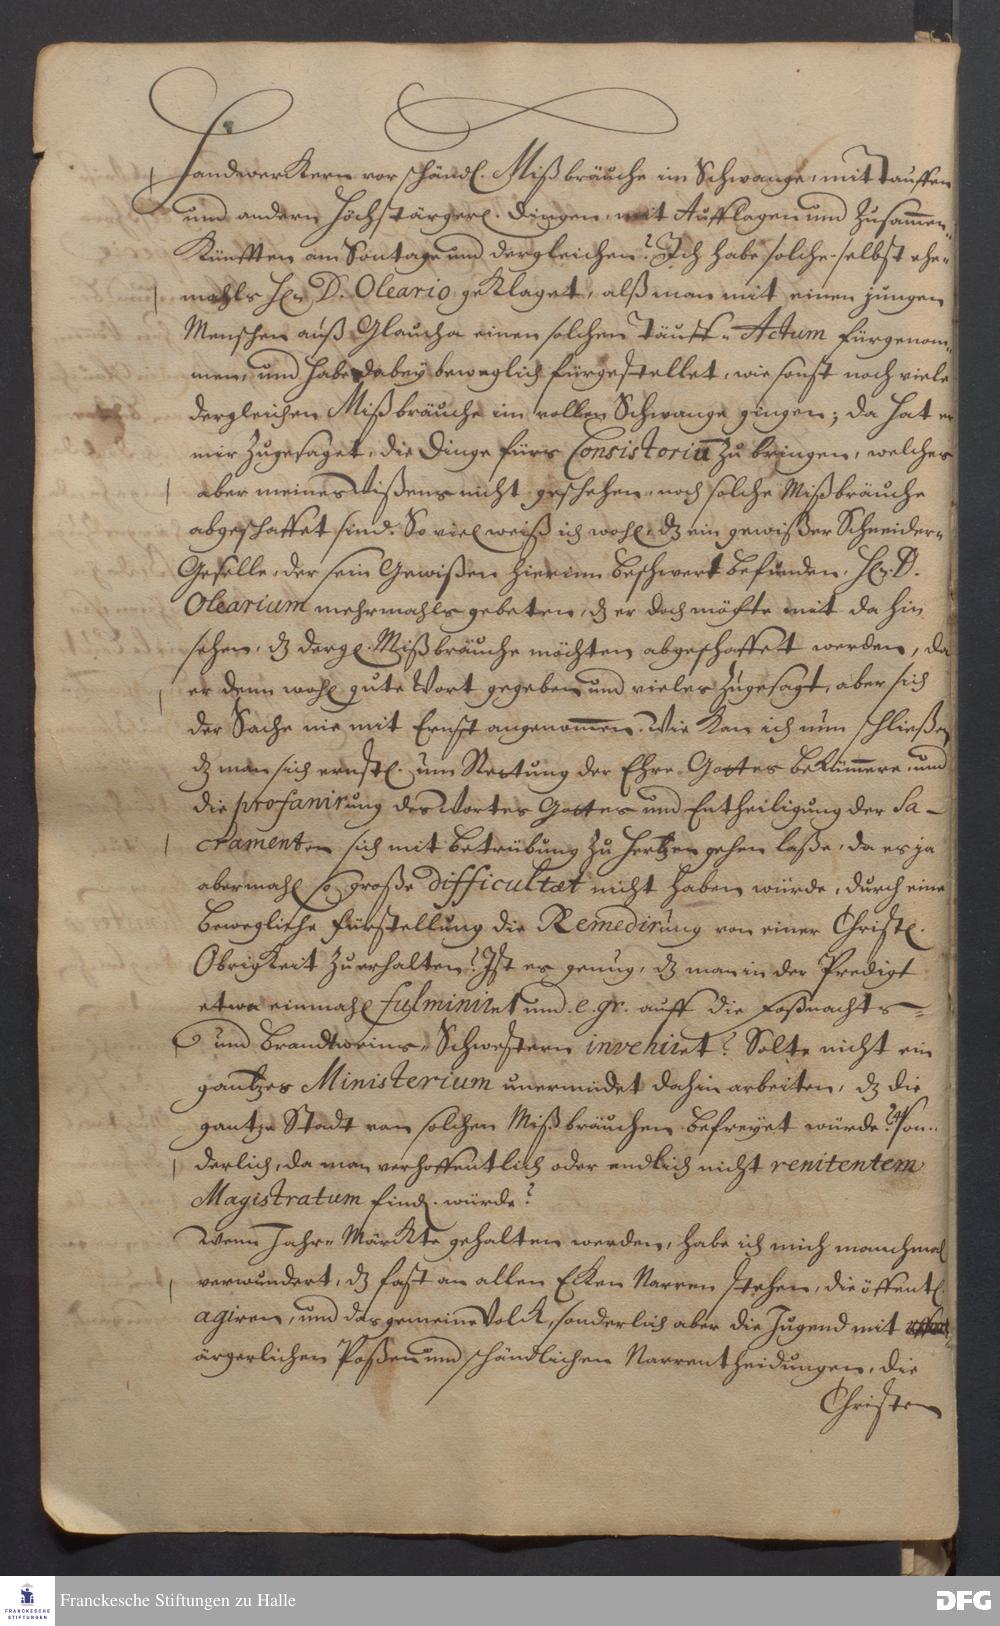 Handwerckern vor schändl. Mißbräuche im Schwange, mit Tauffen
und andern höchstärgerl. Dingen, mit Aufflagen und Zusam̅en-
Künfften am Sontage und dergleichen? Ich habe solche selbst ehe-
mahls Hn D. Oleario geklaget, alß man mit einen jungen
Menschen auß Glaucha einen solchen Täuff-Actum fürgenom-
men, und habe dabey beweglich fürgestellet, wie sonst noch viele
dergleichen Mißbräuche im vollen Schwange gingen; da hat er
mir zugesaget, die Dinge fürs Consistoriu̅ zu bringen, welches
aber meines Wißens nicht geschehen, noch solche Mißbräuche
abgeschaffet sind. So viel weiß ich wohl, dz ein gewißer Schneider-
Geselle, der sein Gewißen hierinn beschwert befunden, Hn. D.
Olearium mehrmahls gebeten, dz er doch möchte mit da hin
sehen, dz dergl. Mißbräuche möchten abgeschaffet werden, da
er denn wohl gute Wort gegeben und vieles zugesagt, aber sich
der Sache nie mit Ernst angenom̅en. Wie kan ich nun schließen
dz man sich ernstl. um Rettung der Ehre Gottes beküm̅ere, und
die profanirung des Wortes Gottes und Entheiligung der Sa-
cramenten sich mit Betrübung zu Hertzen gehen laße, da es ja
abermahl so große difficultæt nicht haben würde, durch eine
bewegliche Fürstellung die Remedirung von einer Christl.
Obrigkeit zu erhalten? Ist es genug, dz man in der Predigt
etwa einmahl fulminiret und e. gr. auff die Faßnachts-
und Brandtweins-Schwestern invehiret? Solte nicht ein
gantzes Ministerium unermüdet dahin arbeiten, dz die
gantze Stadt von solchen Mißbräuchen befreyet würde? son-
derlich, da man verhoffentlich oder endlich nicht renitentem
Magistratum find. würde?
Wenn Jahr-Märckte gehalten werden, habe ich mich manchmal
verwundert, dz fast an allen Ecken Narren stehen, die öffentl.
agiren, und das gemeine Volck, sonderlich aber die Jugend mit
ärgerlichen Poßen und schändlichen Narrentheidungen, die
Christen
Franckesche Stiftungen zu Halle
FRANCKESCHE
STIFTUNGEN
DFG